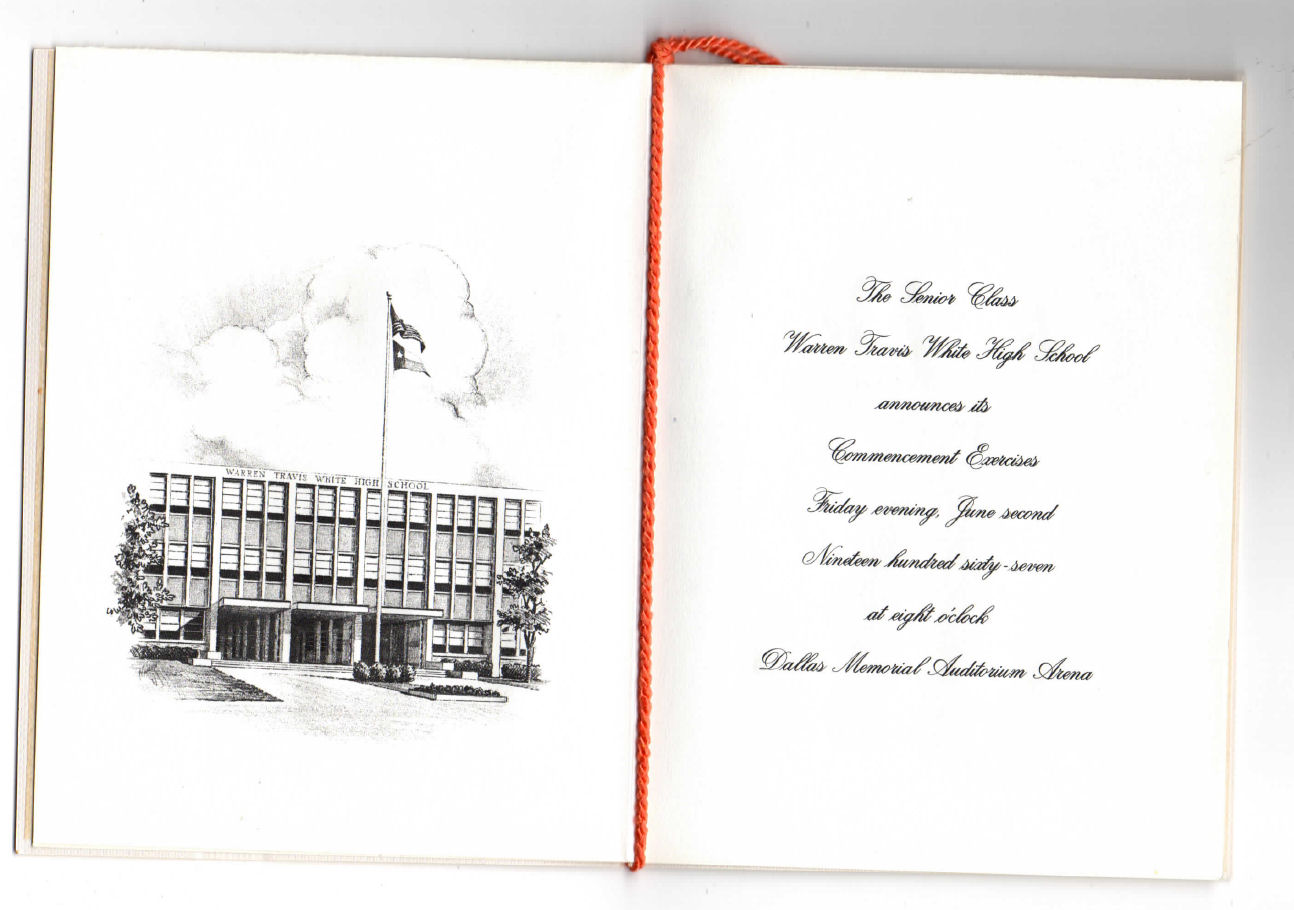 WARREN TRAVIS WHITE HIGH SCHOOL
The Senior Class
Warren Travis White High School
announces its
Commencement Exercises
Friday evening, June second
Nineteen hundred sixty-seven
at eight o'clock
Dallas Memorial Auditorium Arena